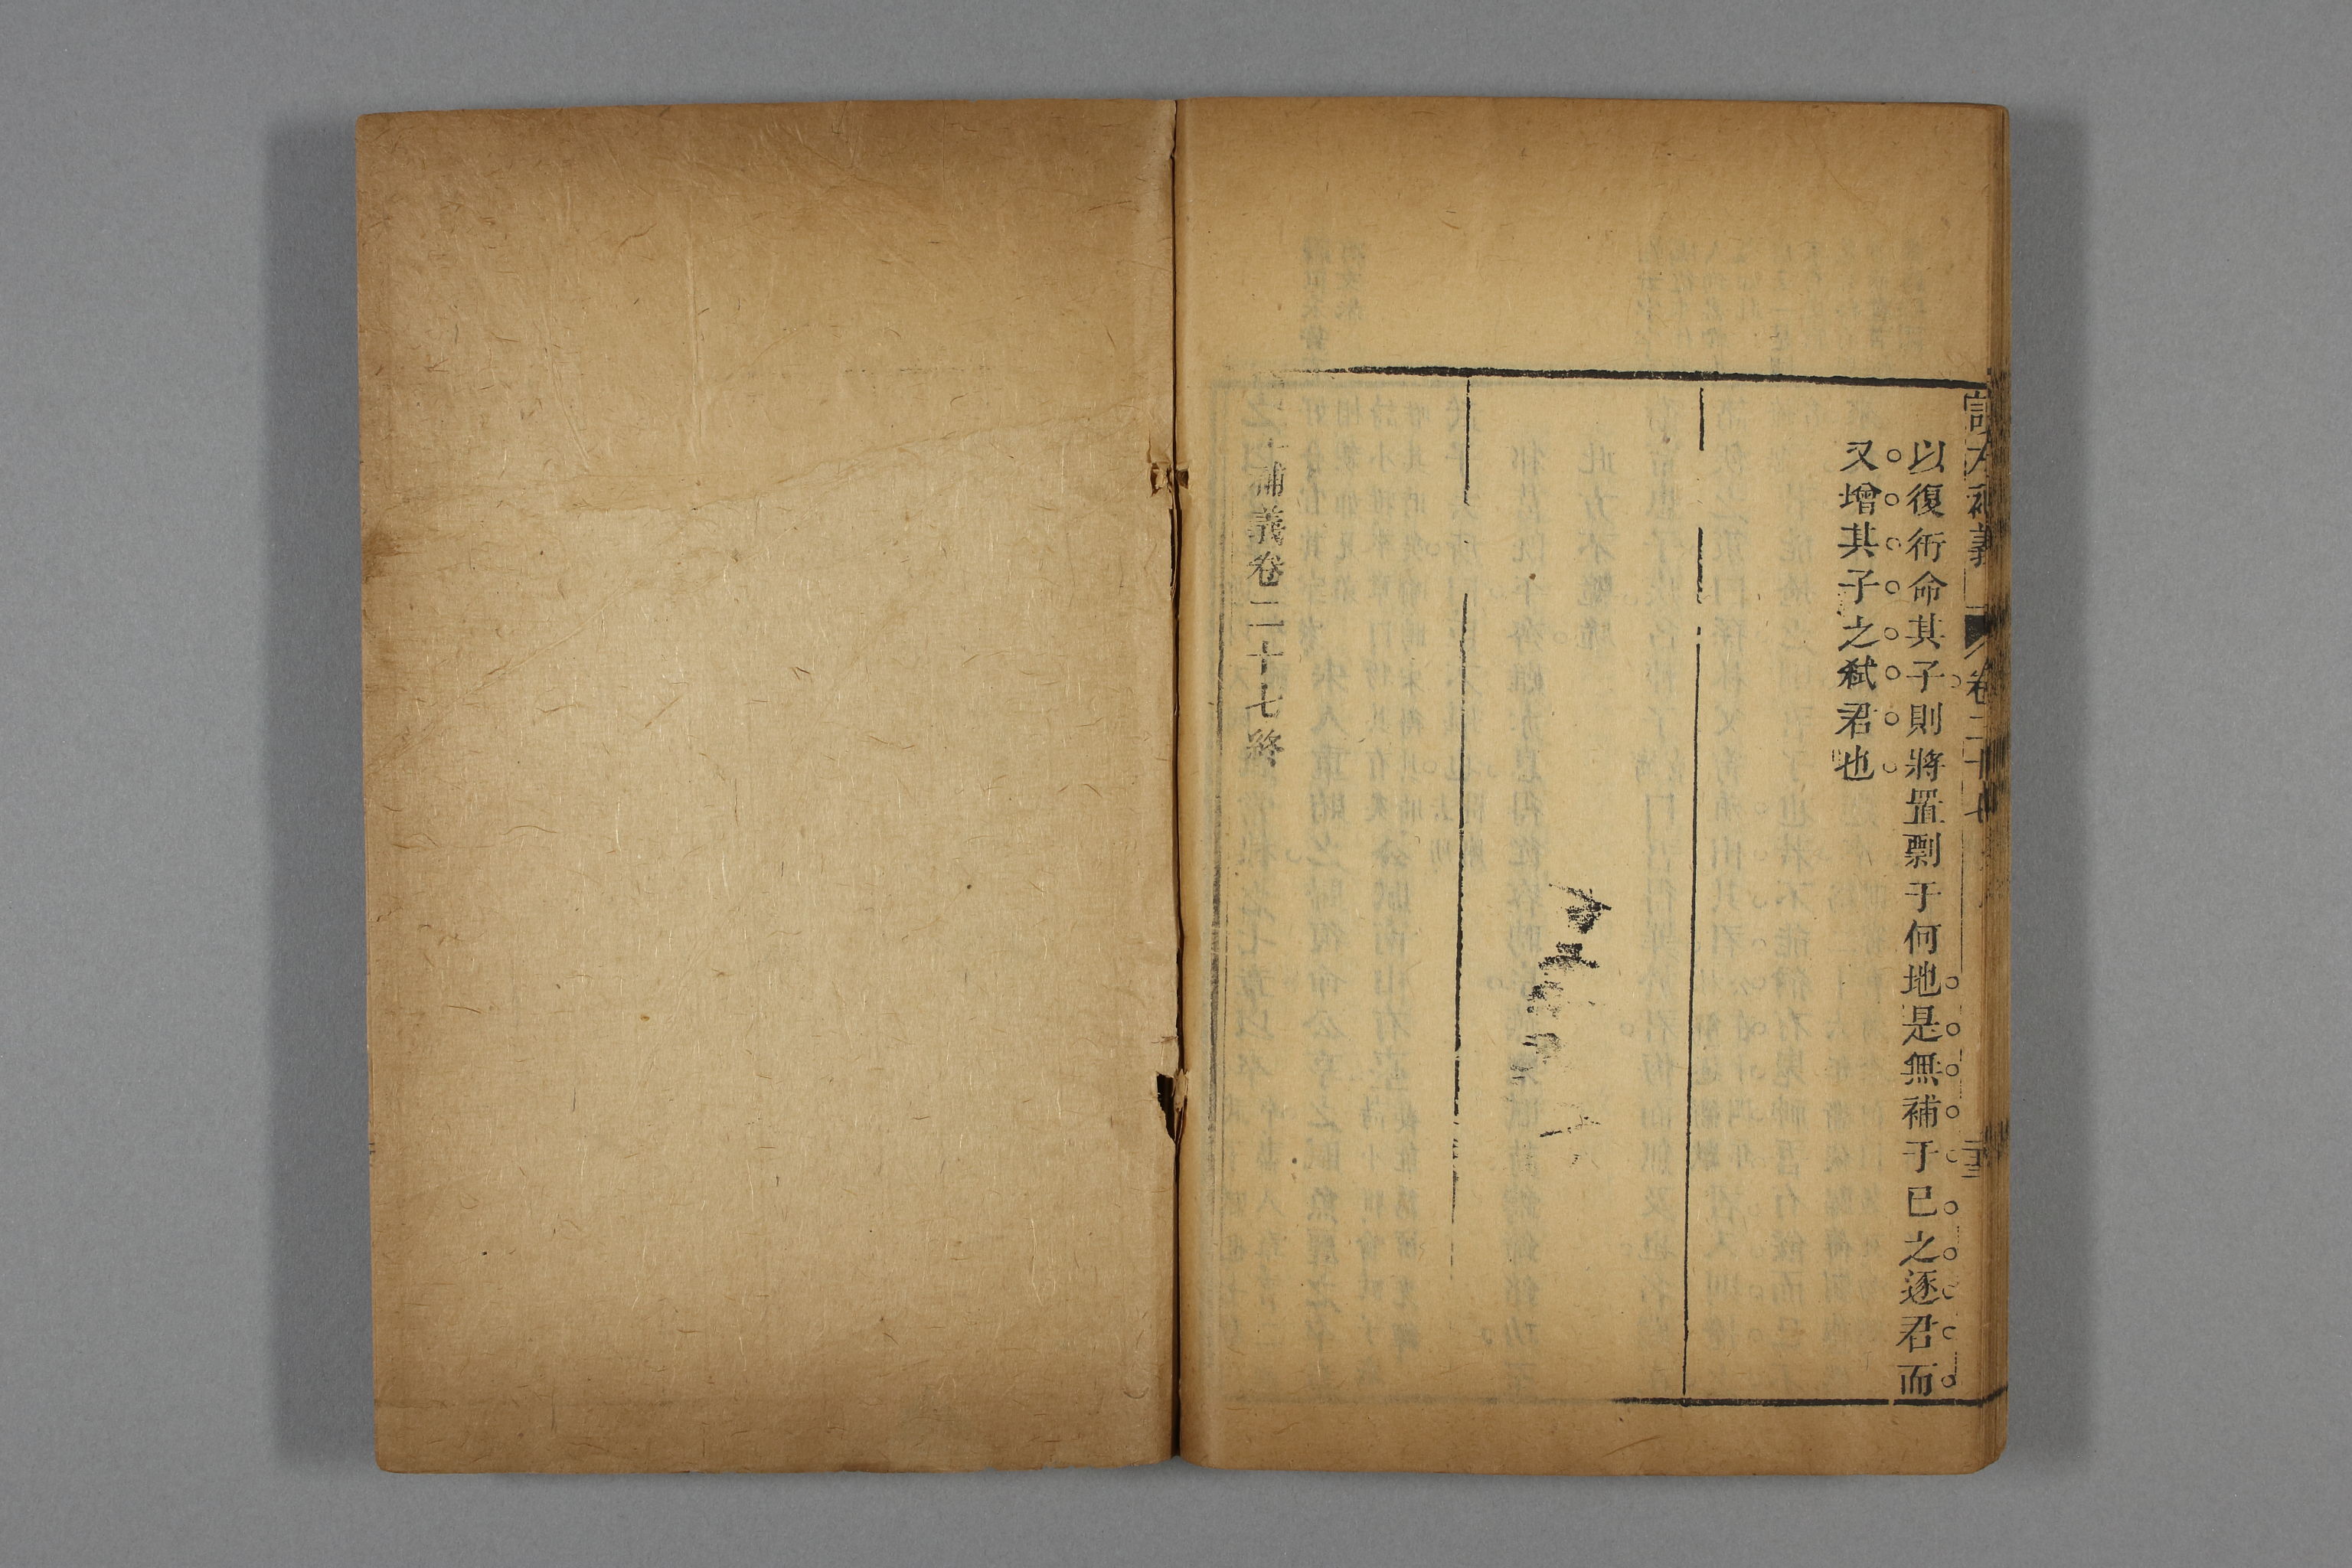 讀左補義 卷二十七
以復衎命其子則將置剽于何地是無補于已之逐君而
又增其子之弑君也
補義卷二十七終